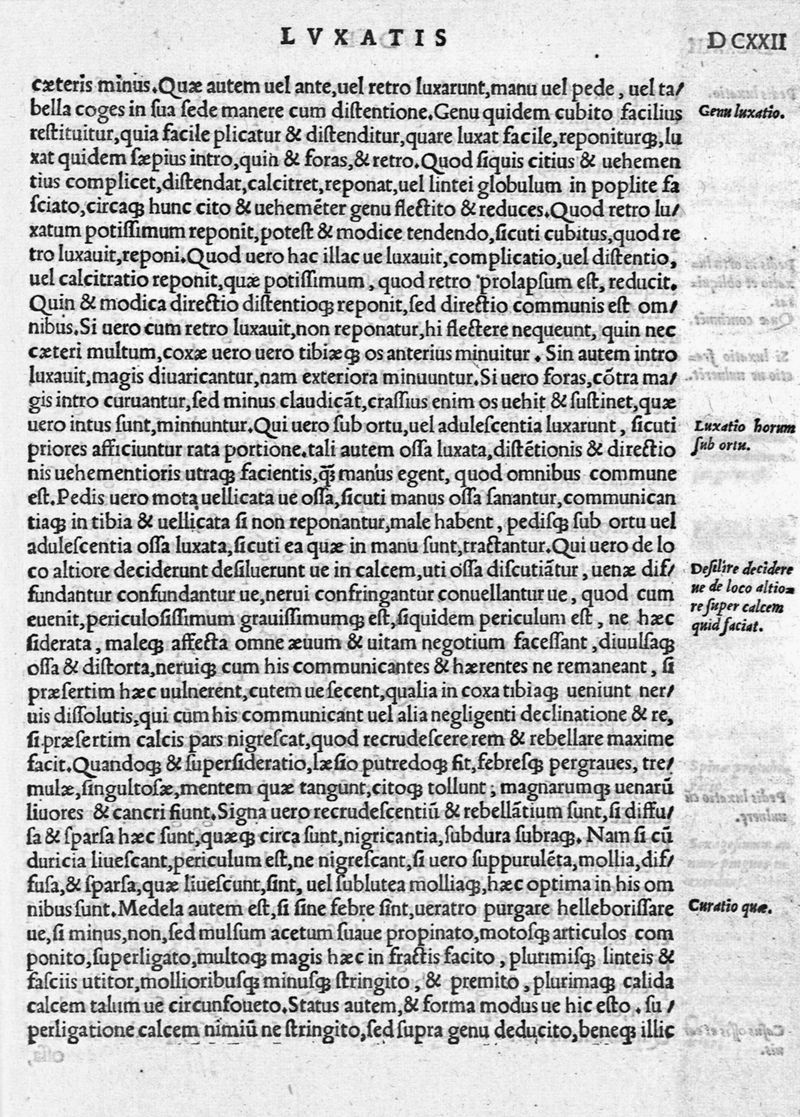 LVXATIS DCXXII
cæteris minus. Quæ autem uel ante, uel retro luxarunt, manu uel pede, uel ta/
bella coges in sua sede manere cum distentione. Genu quidem cubito facilius
Genu luxatio.
restituitur, quia facile plicatur & distenditur, quare luxat facile, reponiturꝗ, lu
xat quidem sæpius intro, quin & foras, & retro. Quod siquis citius & uehemen
tius complicet, distendat, calcitret, reponat, uel lintei globulum in poplite fa
sciato, circaꝗ hunc cito & uehemēter genu flectito & reduces. Quod retro lu/
xatum potissimum reponit, potest & modice tendendo, sicuti cubitus, quod re
tro luxauit, reponi. Quod uero hac illac ue luxauit, complicatio, uel distentio,
uel calcitratio reponit, quæ potissimum, quod retro prolapsum est, reducit.
Quin & modica directio distentioꝗ reponit, sed directio communis est om/
nibus. Si uero cum retro luxauit, non reponatur, hi flectere nequeunt, quin nec
cæteri multum, coxæ uero uero tibiæꝗ os anterius minuitur. Sin autem intro
luxauit, magis diuaricantur, nam exteriora minuuntur. Si uero foras, cōtra ma/
gis intro curuantur, sed minus claudicāt, crassius enim os uehit & sustinet, quæ
uero intus sunt, minnuntur. Qui uero sub ortu, uel adulescentia luxarunt, sicuti
Luxatio horum
sub ortu.
priores afficiuntur rata portione. tali autem ossa luxata, distētionis & directio
nis uehementioris utraꝗ facientis, ꝗ̄ manus egent, quod omnibus commune
est. Pedis uero mota uellicata ue ossa, sicuti manus ossa sanantur, communican
tiaꝗ in tibia & uellicata si non reponantur, male habent, pedisꝗ sub ortu uel
adulescentia ossa luxata, sicuti ea quæ in manu sunt, tractantur. Qui uero de lo
co altiore deciderunt desiluerunt ue in calcem, uti ossa discutiātur, uenæ dif/
Desilire decidere
ue de loco altio=
re super calcem
quid faciat.
fundantur confundantur ue, nerui confringantur conuellantur ue, quod cum
euenit, periculosissimum grauissimumꝗ est, siquidem periculum est, ne hæc
siderata, maleꝗ affecta omne æuum & uitam negotium facessant, diuulsaꝗ
ossa & distorta, neruiꝗ cum his communicantes & hærentes ne remaneant, si
præsertim hæc uulnerent, cutem ue secent, qualia in coxa tibiaꝗ ueniunt ner/
uis dissolutis, qui cum his communicant uel alia negligenti declinatione & re,
si præsertim calcis pars nigrescat, quod recrudescere rem & rebellare maxime
facit. Quandoꝗ & supersideratio, læsio putredoꝗ fit, febresꝗ pergraues, tre/
mulæ, singultosæ, mentem quæ tangunt, citoꝗ tollunt; magnarumꝗ uenarū
liuores & cancri fiunt. Signa uero recrudescentiū & rebellātium sunt, si diffu/
sa & sparsa hæc sunt, quæꝗ circa sunt, nigricantia, subdura subraꝗ. Nam si cū
duricia liuescant, periculum est, ne nigrescant, si uero suppurulēta, mollia, dif/
fusa, & sparsa, quæ liuescunt, sint, uel sublutea molliaꝗ, hæc optima in his om
nibus sunt. Medela autem est, si sine febre sint, ueratro purgare helleborissare
Curatio quæ.
ue, si minus, non, sed mulsum acetum suaue propinato, motosꝗ articulos com
ponito, superligato, multoꝗ magis hæc in fractis facito, plurimisꝗ linteis &
fasciis utitor, mollioribusꝗ minusꝗ stringito, & premito, plurimaꝗ calida
calcem talum ue circunfoueto. Status autem, & forma modus ue hic esto. su/
perligatione calcem nimiū ne stringito, sed supra genu deducito, beneꝗ illic